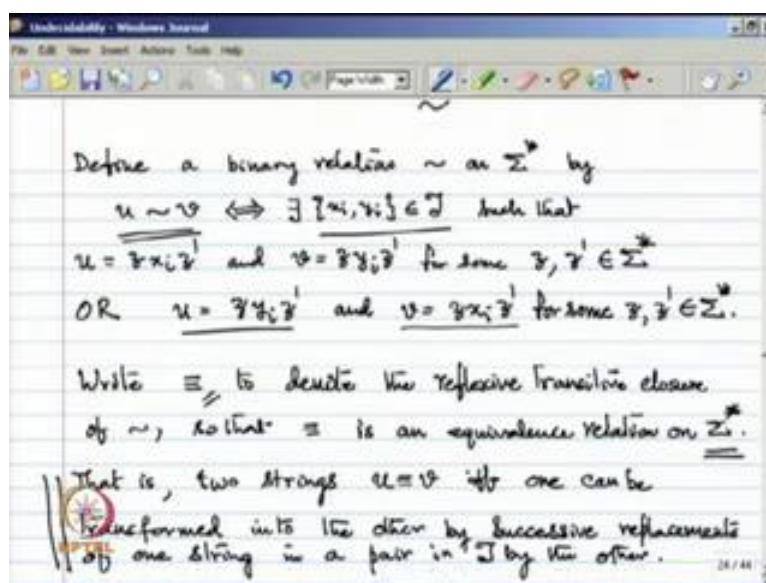 Undecidability - Windows Journal
File Edit View Insert Actions Tools Help
Page Width
~
Define a binary relation ~ on Σ* by
u ~ v ⇔ ∃ {xi, yi} ∈ J such that
u = z xi z' and v = z yi z' for some z, z' ∈ Σ*
OR u = z yi z' and v = z xi z' for some z, z' ∈ Σ*.
Write ≡ to denote the reflexive transitive closure
of ~, so that ≡ is an equivalence relation on Σ*.
That is, two strings u ≡ v iff one can be
transformed into the other by successive replacements
of one string in a pair in J by the other.
NPTEL
24/44